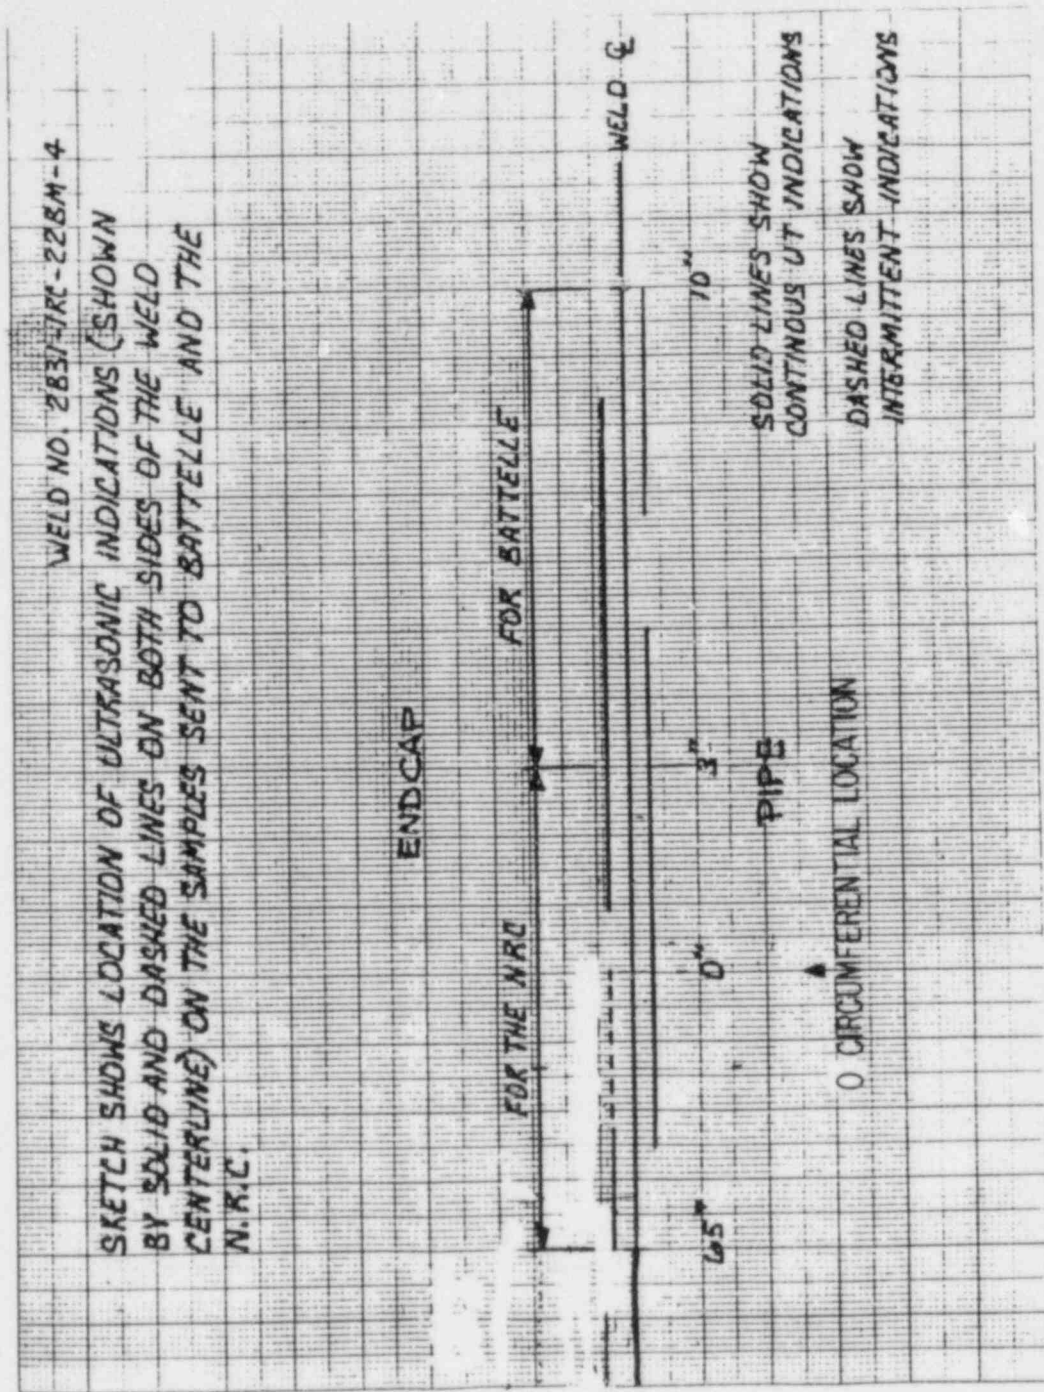 WELD NO. 2B31-1RC-22BM-4
SKETCH SHOWS LOCATION OF ULTRASONIC INDICATIONS (SHOWN
BY SOLID AND DASHED LINES ON BOTH SIDES OF THE WELD
CENTERLINE) ON THE SAMPLES SENT TO BATTELLE AND THE
N.R.C.
ENDCAP
FOR THE NRC
FOR BATTELLE
WELD ℄
65"
0"
3"
10"
PIPE
O CIRCUMFERENTIAL LOCATION
SOLID LINES SHOW
CONTINOUS UT INDICATIONS
DASHED LINES SHOW
INTERMITTENT INDICATIONS